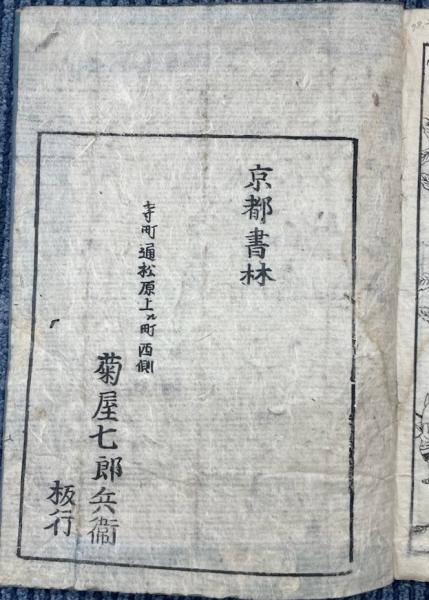 京都書林
寺町通松原上ル町西側
菊屋七郎兵衛
板行